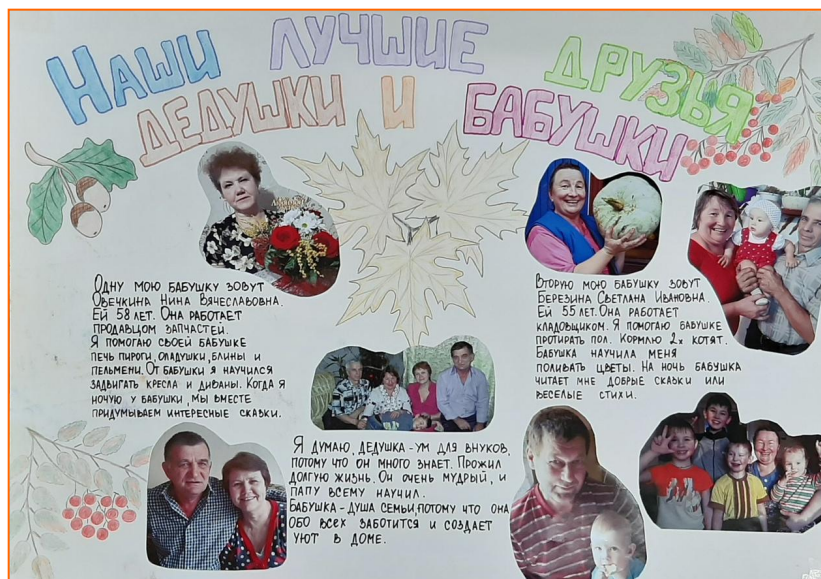 НАШИ ЛУЧШИЕ ДРУЗЬЯ
ДЕДУШКИ И БАБУШКИ
Одну мою бабушку зовут
Овечкина Нина Вячеславовна.
Ей 58 лет. Она работает
продавцом запчастей.
Я помогаю своей бабушке
печь пироги, оладушки, блины и
пельмени. От бабушки я научился
задвигать кресла и диваны. Когда я
ночую у бабушки, мы вместе
придумываем интересные сказки.
Вторую мою бабушку зовут
Березина Светлана Ивановна.
Ей 55 лет. Она работает
кладовщиком. Я помогаю бабушке
протирать пол. Кормлю 2х котят.
Бабушка научила меня
поливать цветы. На ночь бабушка
читает мне добрые сказки или
веселые стихи.
Я думаю, дедушка - ум для внуков,
потому что он много знает. Прожил
долгую жизнь. Он очень мудрый, и
папу всему научил.
Бабушка - душа семьи, потому что она
обо всех заботится и создает
уют в доме.